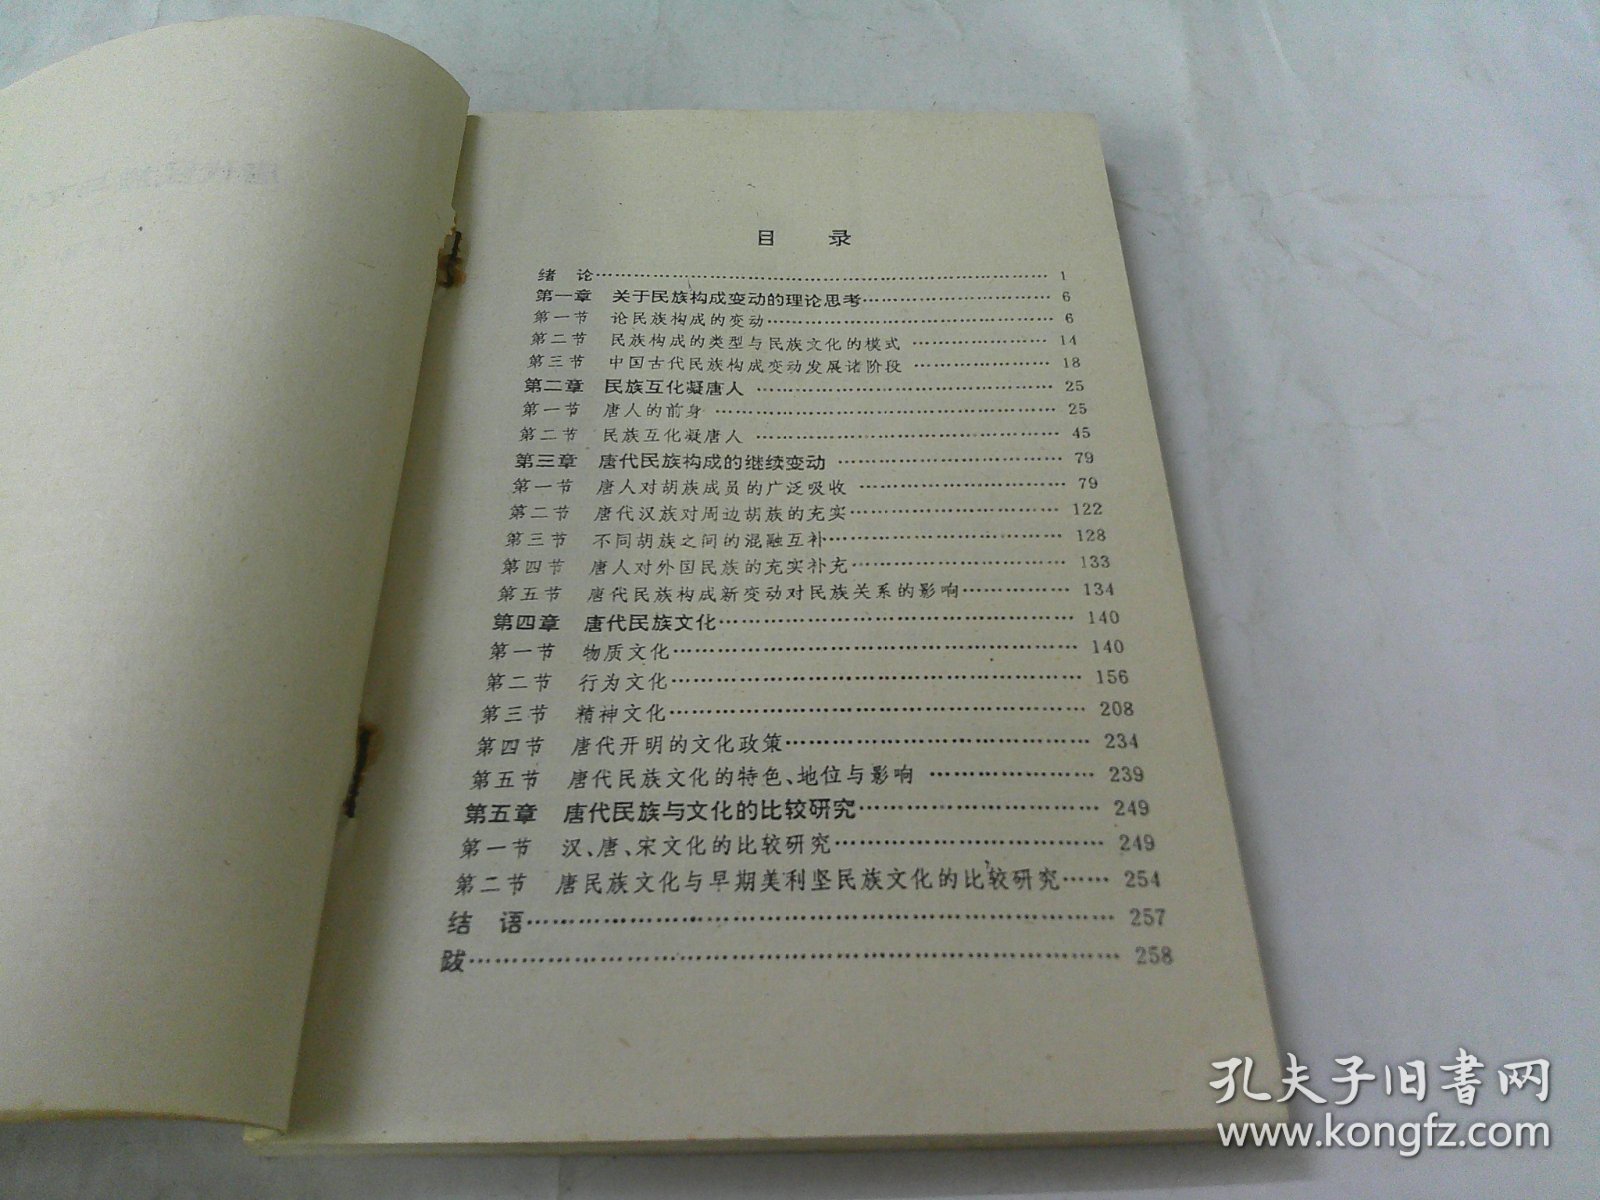 目 录
绪 论……………………………………………………………… 1
第一章 关于民族构成变动的理论思考………………………… 6
第一节 论民族构成的变动……………………………………… 6
第二节 民族构成的类型与民族文化的模式 ………………… 14
第三节 中国古代民族构成变动发展诸阶段 ………………… 18
第二章 民族互化凝唐人 ……………………………………… 25
第一节 唐人的前身 …………………………………………… 25
第二节 民族互化凝唐人 ……………………………………… 45
第三章 唐代民族构成的继续变动 …………………………… 79
第一节 唐人对胡族成员的广泛吸收 ………………………… 79
第二节 唐代汉族对周边胡族的充实………………………… 122
第三节 不同胡族之间的混融互补…………………………… 128
第四节 唐人对外国民族的充实补充………………………… 133
第五节 唐代民族构成新变动对民族关系的影响…………… 134
第四章 唐代民族文化………………………………………… 140
第一节 物质文化……………………………………………… 140
第二节 行为文化……………………………………………… 156
第三节 精神文化……………………………………………… 208
第四节 唐代开明的文化政策………………………………… 234
第五节 唐代民族文化的特色、地位与影响 ………………… 239
第五章 唐代民族与文化的比较研究………………………… 249
第一节 汉、唐、宋文化的比较研究…………………………… 249
第二节 唐民族文化与早期美利坚民族文化的比较研究…… 254
结 语…………………………………………………………… 257
跋……………………………………………………………… 258
孔夫子旧书网
www.kongfz.com